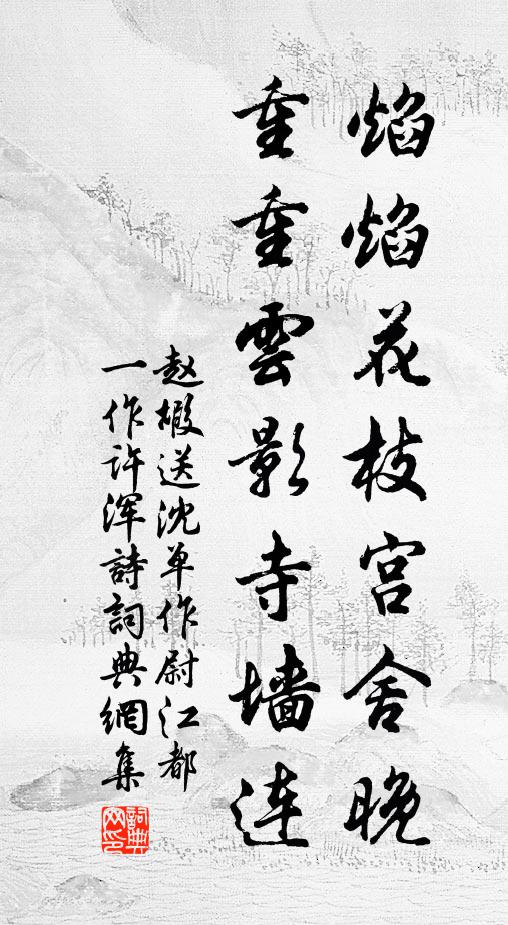 焰焰花枝宫舍晚
重重雲影寺墙連
赵嘏送沈单作尉江都
一作许浑詩詞典網集
詞典网印